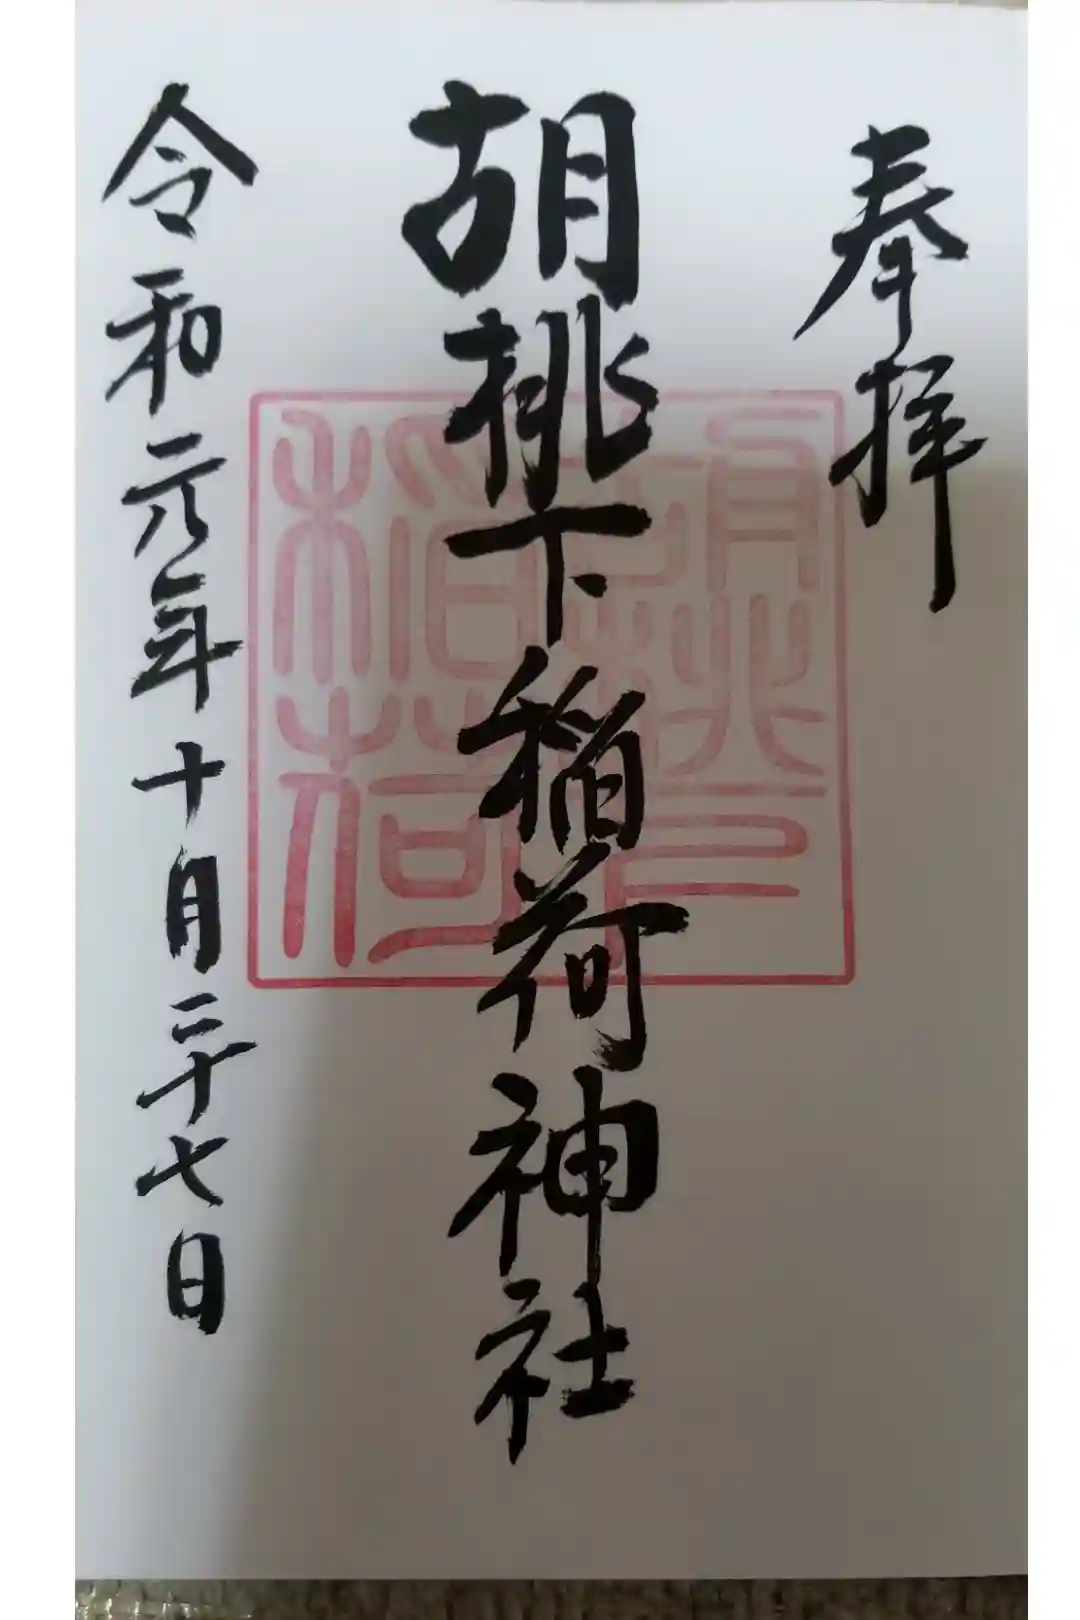 奉拝
胡桃下稲荷神社
令和元年十月二十七日